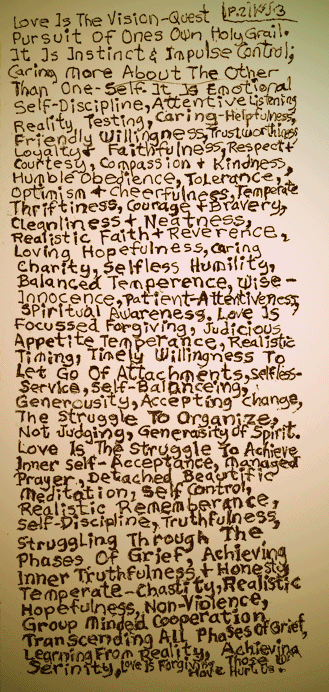 Love Is The Vision-Quest
Pursuit Of Ones Own, Holy Grail.
It Is Instinct & Impulse Control,
Caring More About The Other
Than One-Self. It Is Emotional
Self-Discipline, Attentive Listening
Reality Testing, Caring-Helpfulness,
Friendly Willingness, Trustworthiness
Loyalty & Faithfulness, Respect &
Courtesy, Compassion & Kindness,
Humble Obedience, Tolerance,
Optimism & Cheerfulness, Temperate
Thriftiness, Courage & Bravery,
Cleanliness & Neatness,
Realistic Faith & Reverence,
Loving Hopefulness, Caring
Charity, Selfless Humility,
Balanced Temperence, Wise-
Innocence, Patient-Attentiveness,
Spiritual Awareness. Love Is
Focussed Forgiving, Judicious
Appetite Temperance, Realistic
Timing, Timely Willingness To
Let Go Of Attachments, Selfless-
Service, Self-Balanceing,
Generousity, Accepting Change,
The Struggle To Organize,
Not Judging, Generasity of Spirit.
Love Is The Struggle To Achieve
Inner Self-Acceptance, Managed
Prayer, Detached Beautific
Meditation, Self Control,
Realistic Rememberance,
Self-Discipline, Truthfulness,
Struggling Through The
Phases Of Grief, Achieving
Inner Truthfulness & Honesty
Temperate-Chastity, Realistic
Hopefulness, Non-Violence,
Group Minded Cooperation,
Transcending All Phases Of Grief,
Learning From Reality, Achieving
Serinity, Love Is Forgiving Those Who
Have Hurt Us.